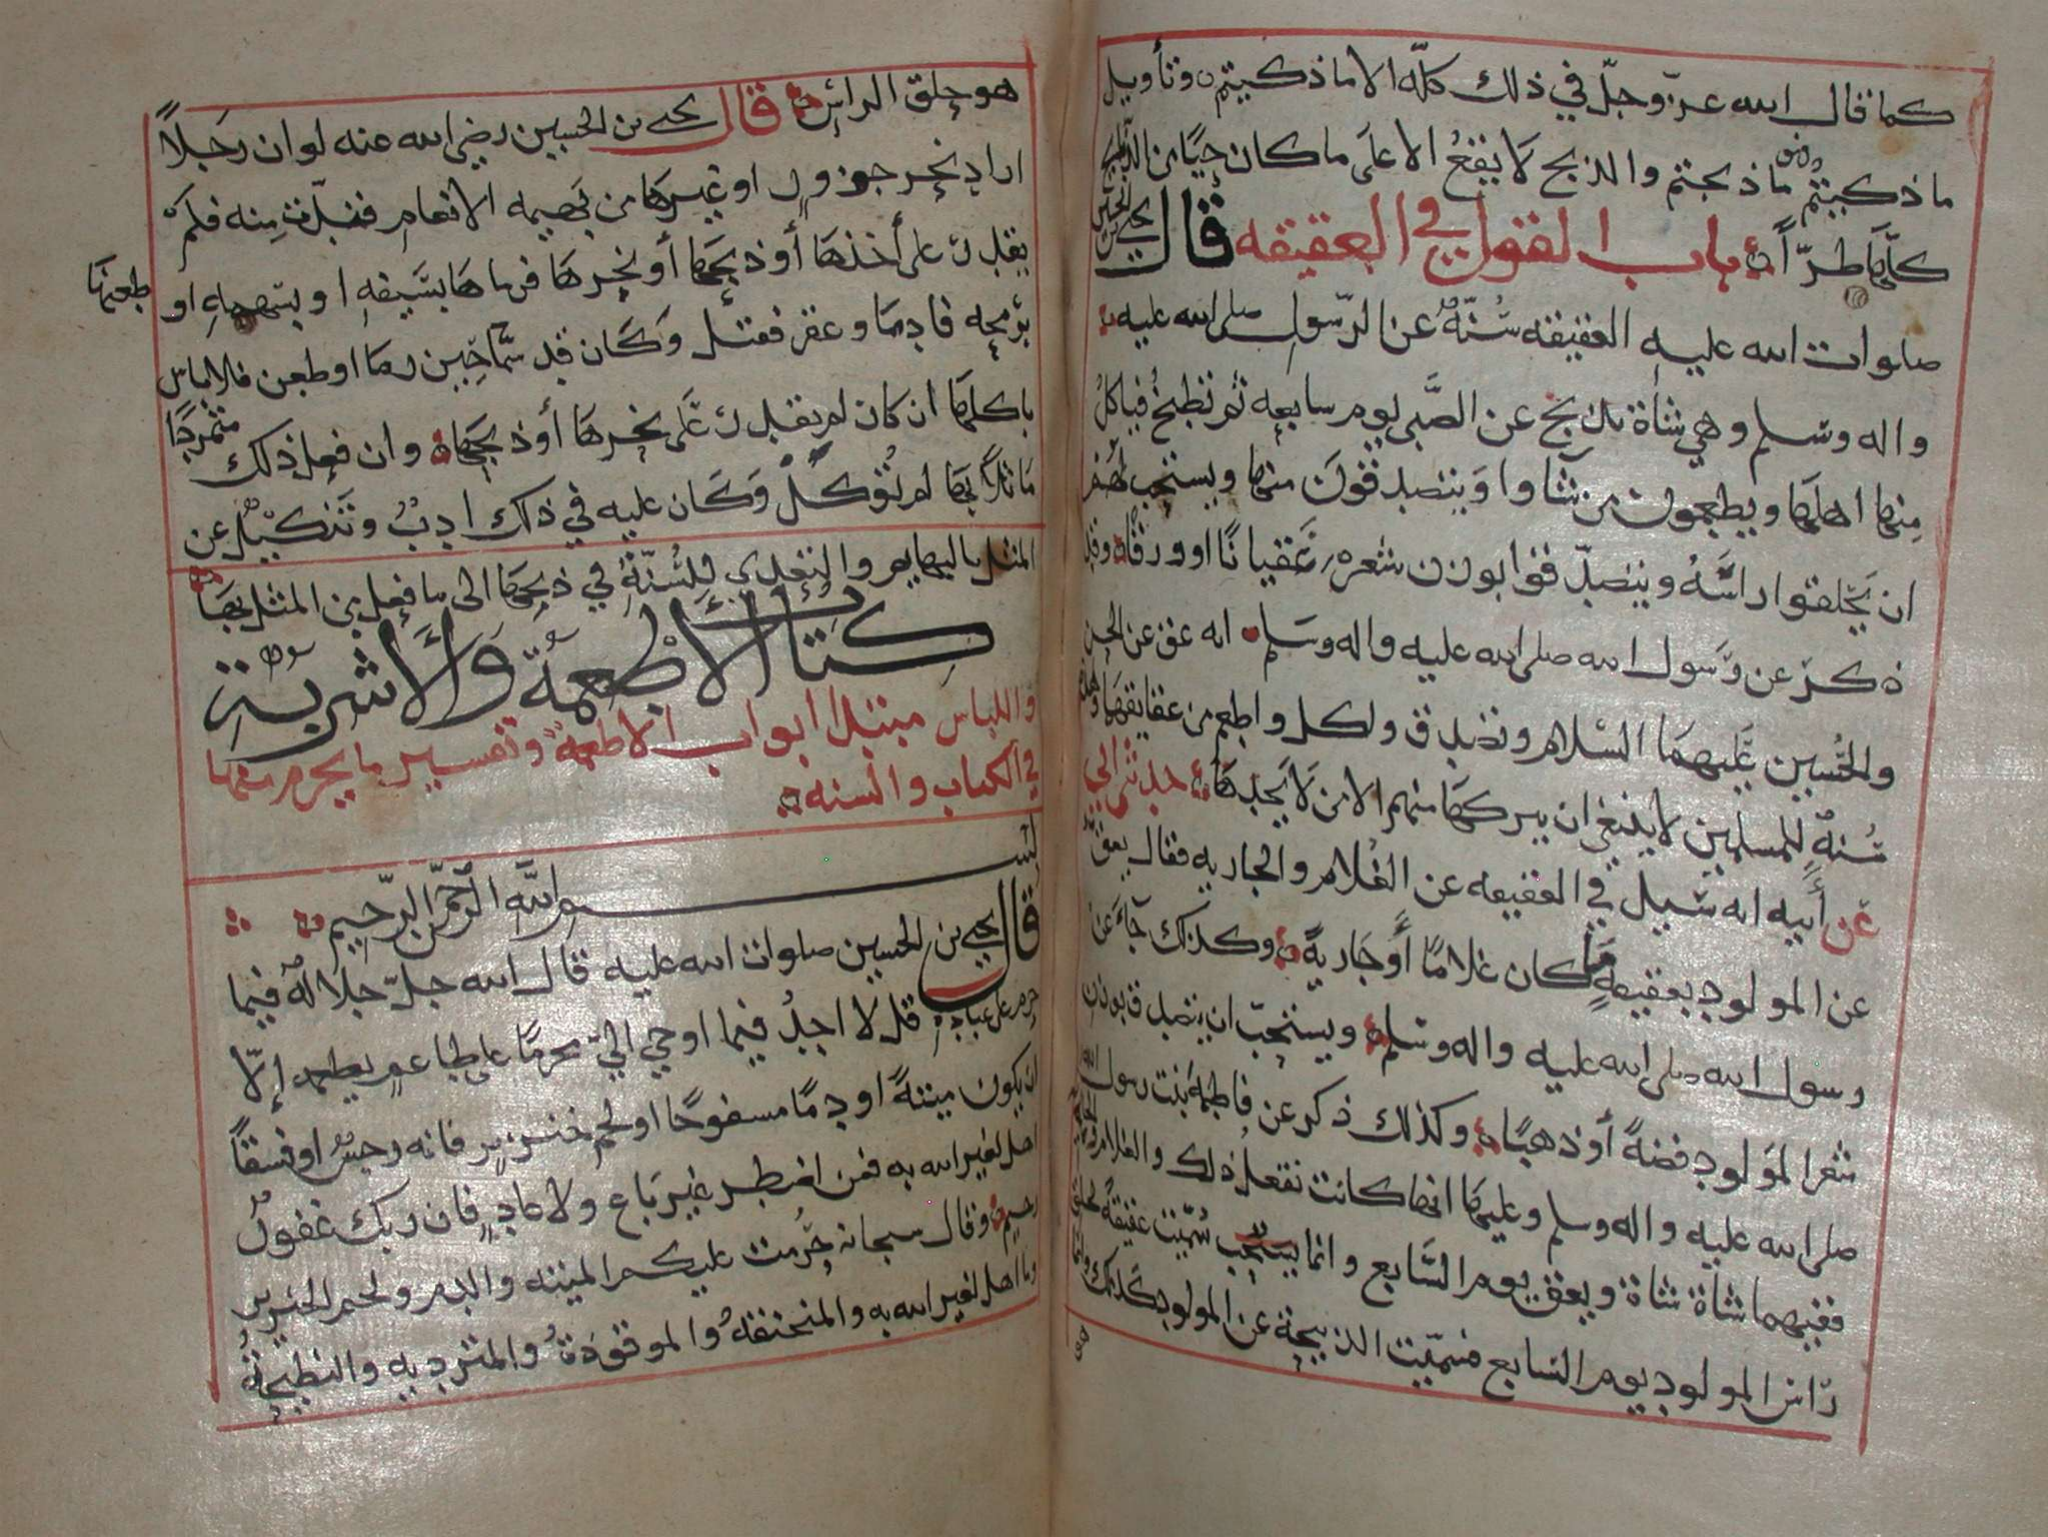 كما قال الله عز وجل في ذلك كله الا ما ذكيتم وتأويل
ما ذكيتم فهو ما ذبحتم والذبح لا يقع الا على ما كان حيًا من الذبايح
كلها طرًّا باب القول في العقيقه قال يحيى بن الحسين
صلوات الله عليه العقيقه سُنّةٌ عن الرّسول صلى الله عليه
واله وسلم وهي شاة تذبح عن الصَّبي يوم سابعه ثم تطبخ فياكلُ
منها اهلها ويطعمون من شاوا وَيتصدقونَ منها ويستحب لهم
ان يَحلقوا راسَهُ ويتصدّقوا بوزن شعره عَقيانًا او ورقًا وقد
ذكرَ عن رَسول الله صلى الله عليه واله وسَلم انه عق عن الحسن
والحُسين عَليهمَا السَّلام وتصدق واكل واطعم من عقايقهما وهي
سُنةٌ للمسلمين لا ينبغي ان يتركها منهم الا من لَا يَجدهَا حدثني ابي
عن أبيه انه سُيل في العقيقه عن الغُلام والجاريه فقال يعق
عن المولود بعقيقةٍ مَا كان غلامًا أوجَاريةً وكذلك جَآءَ عن
رسول الله صلى الله عليه واله وسلم ويستحبّ ان يتصدق بوزن
شعر المَولود فضةً أو ذهبًا وكذلك ذكر عن فاطمة بنت رسول الله
صلى الله عليه واله وسلم وعليها انها كانت تفعل ذلك والغلام والجاريه
ففيهما شاة شاة ويعق يوم السَّابع وانما سُمّيت عقيقةً لحلق
رَاس المولود يوم السابع فسمّيت الذبيحة عن المولود كذلك وانما
هو حلق الراس قال يحيى بن الحسين رضي الله عنه لو ان رَجلاً
اراد نحر جزور او غيرها من بَهيمه الانعام فندّت منه فلم
يقدر على أخذهَا أو ذبحهَا أو نحرهَا فرماهَا بسَيفهِ او بسَهمهِ او طعنها
برُمحِه فادمَا وعقر فقتل وَكَان قد سَمّا حِين رمَا او طعن فلا باس
باكلهَا ان كان لم يقدر عَلى نحرهَا أو ذبحهَا وان فعل ذلك متمردًا
مَاثلاً بهَا لم تُؤكلْ وَكَان عليه في ذلك ادبٌ وتَنكيلٌ عن
المثل بالبهايم والتعدي لِلسُنّةِ في ذبحهَا الى ما فعل من المثل بهَا
كتاب الأطعمة والأشربة
واللباس مبتدا ابواب الاطعمة وتفسير ما يحرم منها
في الكتاب والسنه
بسم اللّه الرّحمن الرّحيم
قال يحيى بن الحسين صلوات الله عليه قال الله جلّ جلاله فيما
حرم على عباده قل لا اجدُ فيما اوحي اليّ محرمًا على طاعمٍ يطعمه إلّا
ان يكون ميتةً او دمًا مسفوحًا او لحم خنزيرٍ فانه رجسٌ او فسقًا
اهل لغير الله به فمن اضطر غير بَاغ ولا عادٍ فان ربك غفورٌ
رحيم وقال سبحانه حُرّمت عليكم الميته والدم ولحم الخنزير
وما اهل لغير الله به والمنخنقةُ والموقوذةُ والمترديه والنطيحةُ